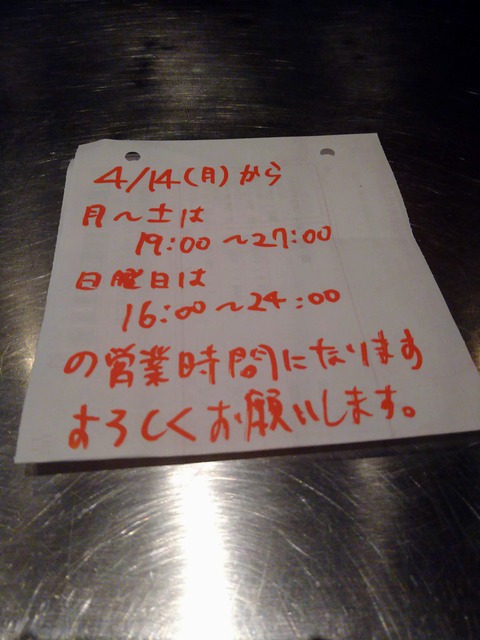 4/14(月)から
月〜土は
19:00〜27:00
日曜日は
16:00〜24:00
の営業時間になります
よろしくお願いします。